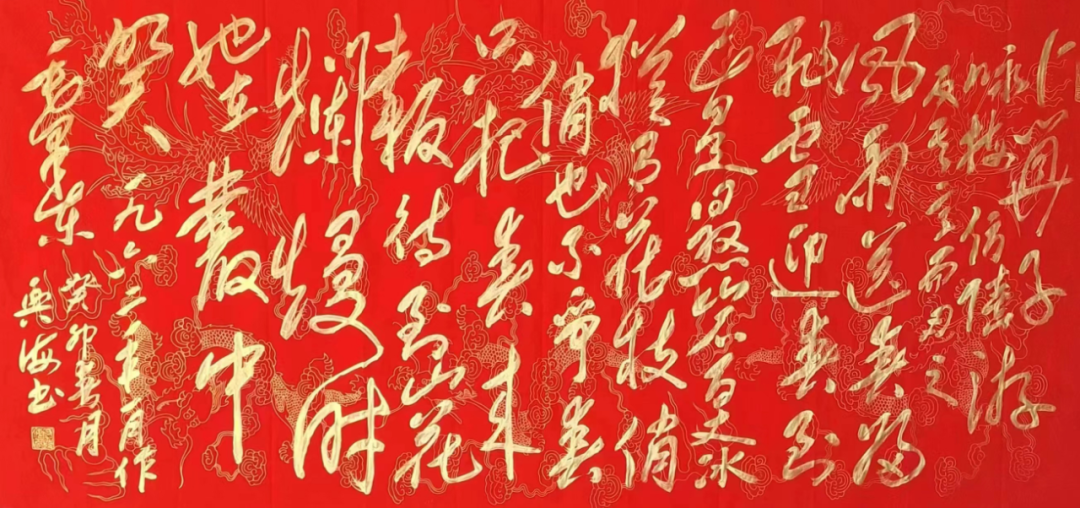 卜算子
咏梅 仿陆游
反其意而用之
风雨送春归
飞雪迎春到
已是悬崖百丈冰
犹有花枝俏
俏也不争春
只把春来
报待到山花
烂熳时
她在丛中
笑 一九六 年十二月作
毛泽东 癸卯春月
兴海书